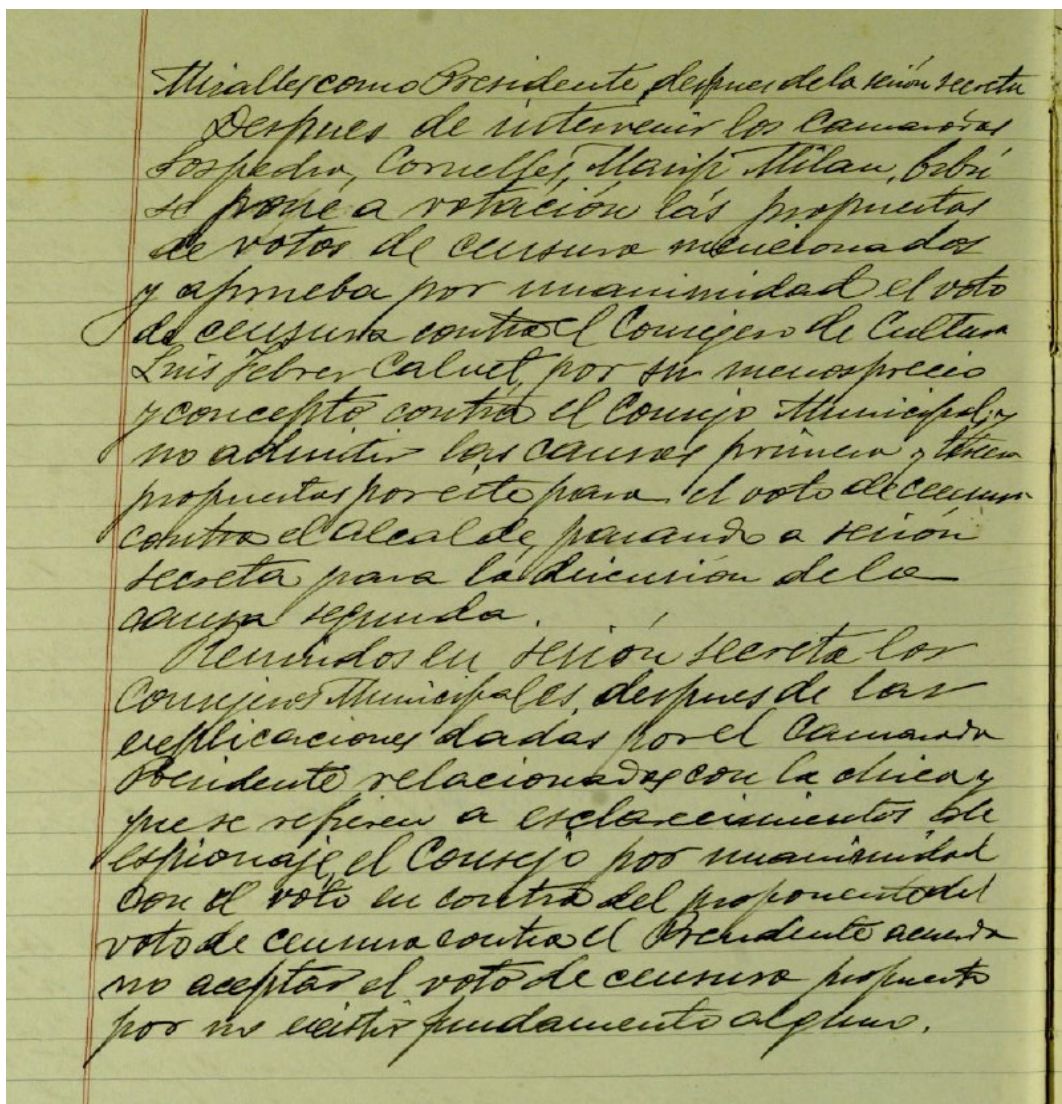 Miralles como Presidente, despues de la sesión secreta
Despues de intervenir los Camaradas
Sospedra, Cornelles, Milan,
se pone a votación las propuestas
de votos de censura mencionados
y aprueba por unanimidad el voto
de censura contra el Consejero de Cultura
Luis Febrer Calvet, por su menosprecio
y concepto contra el Consejo Municipal, y
no admitir las causas primera y tercera
propuestas por este para el voto de censura
contra el Alcalde, pasando a sesión
secreta para la discusión de la
causa segunda.
Reunidos en sesión secreta los
Consejeros Municipales, despues de las
explicaciones dadas por el Camarada
Presidente relacionadas con la chica y
que se refieren a esclarecimientos de
espionaje, el Consejo por unanimidad
con el voto en contra del proponente del
voto de censura contra el Presidente acuerda
no aceptar el voto de censura propuesto
por no existir fundamento alguno.